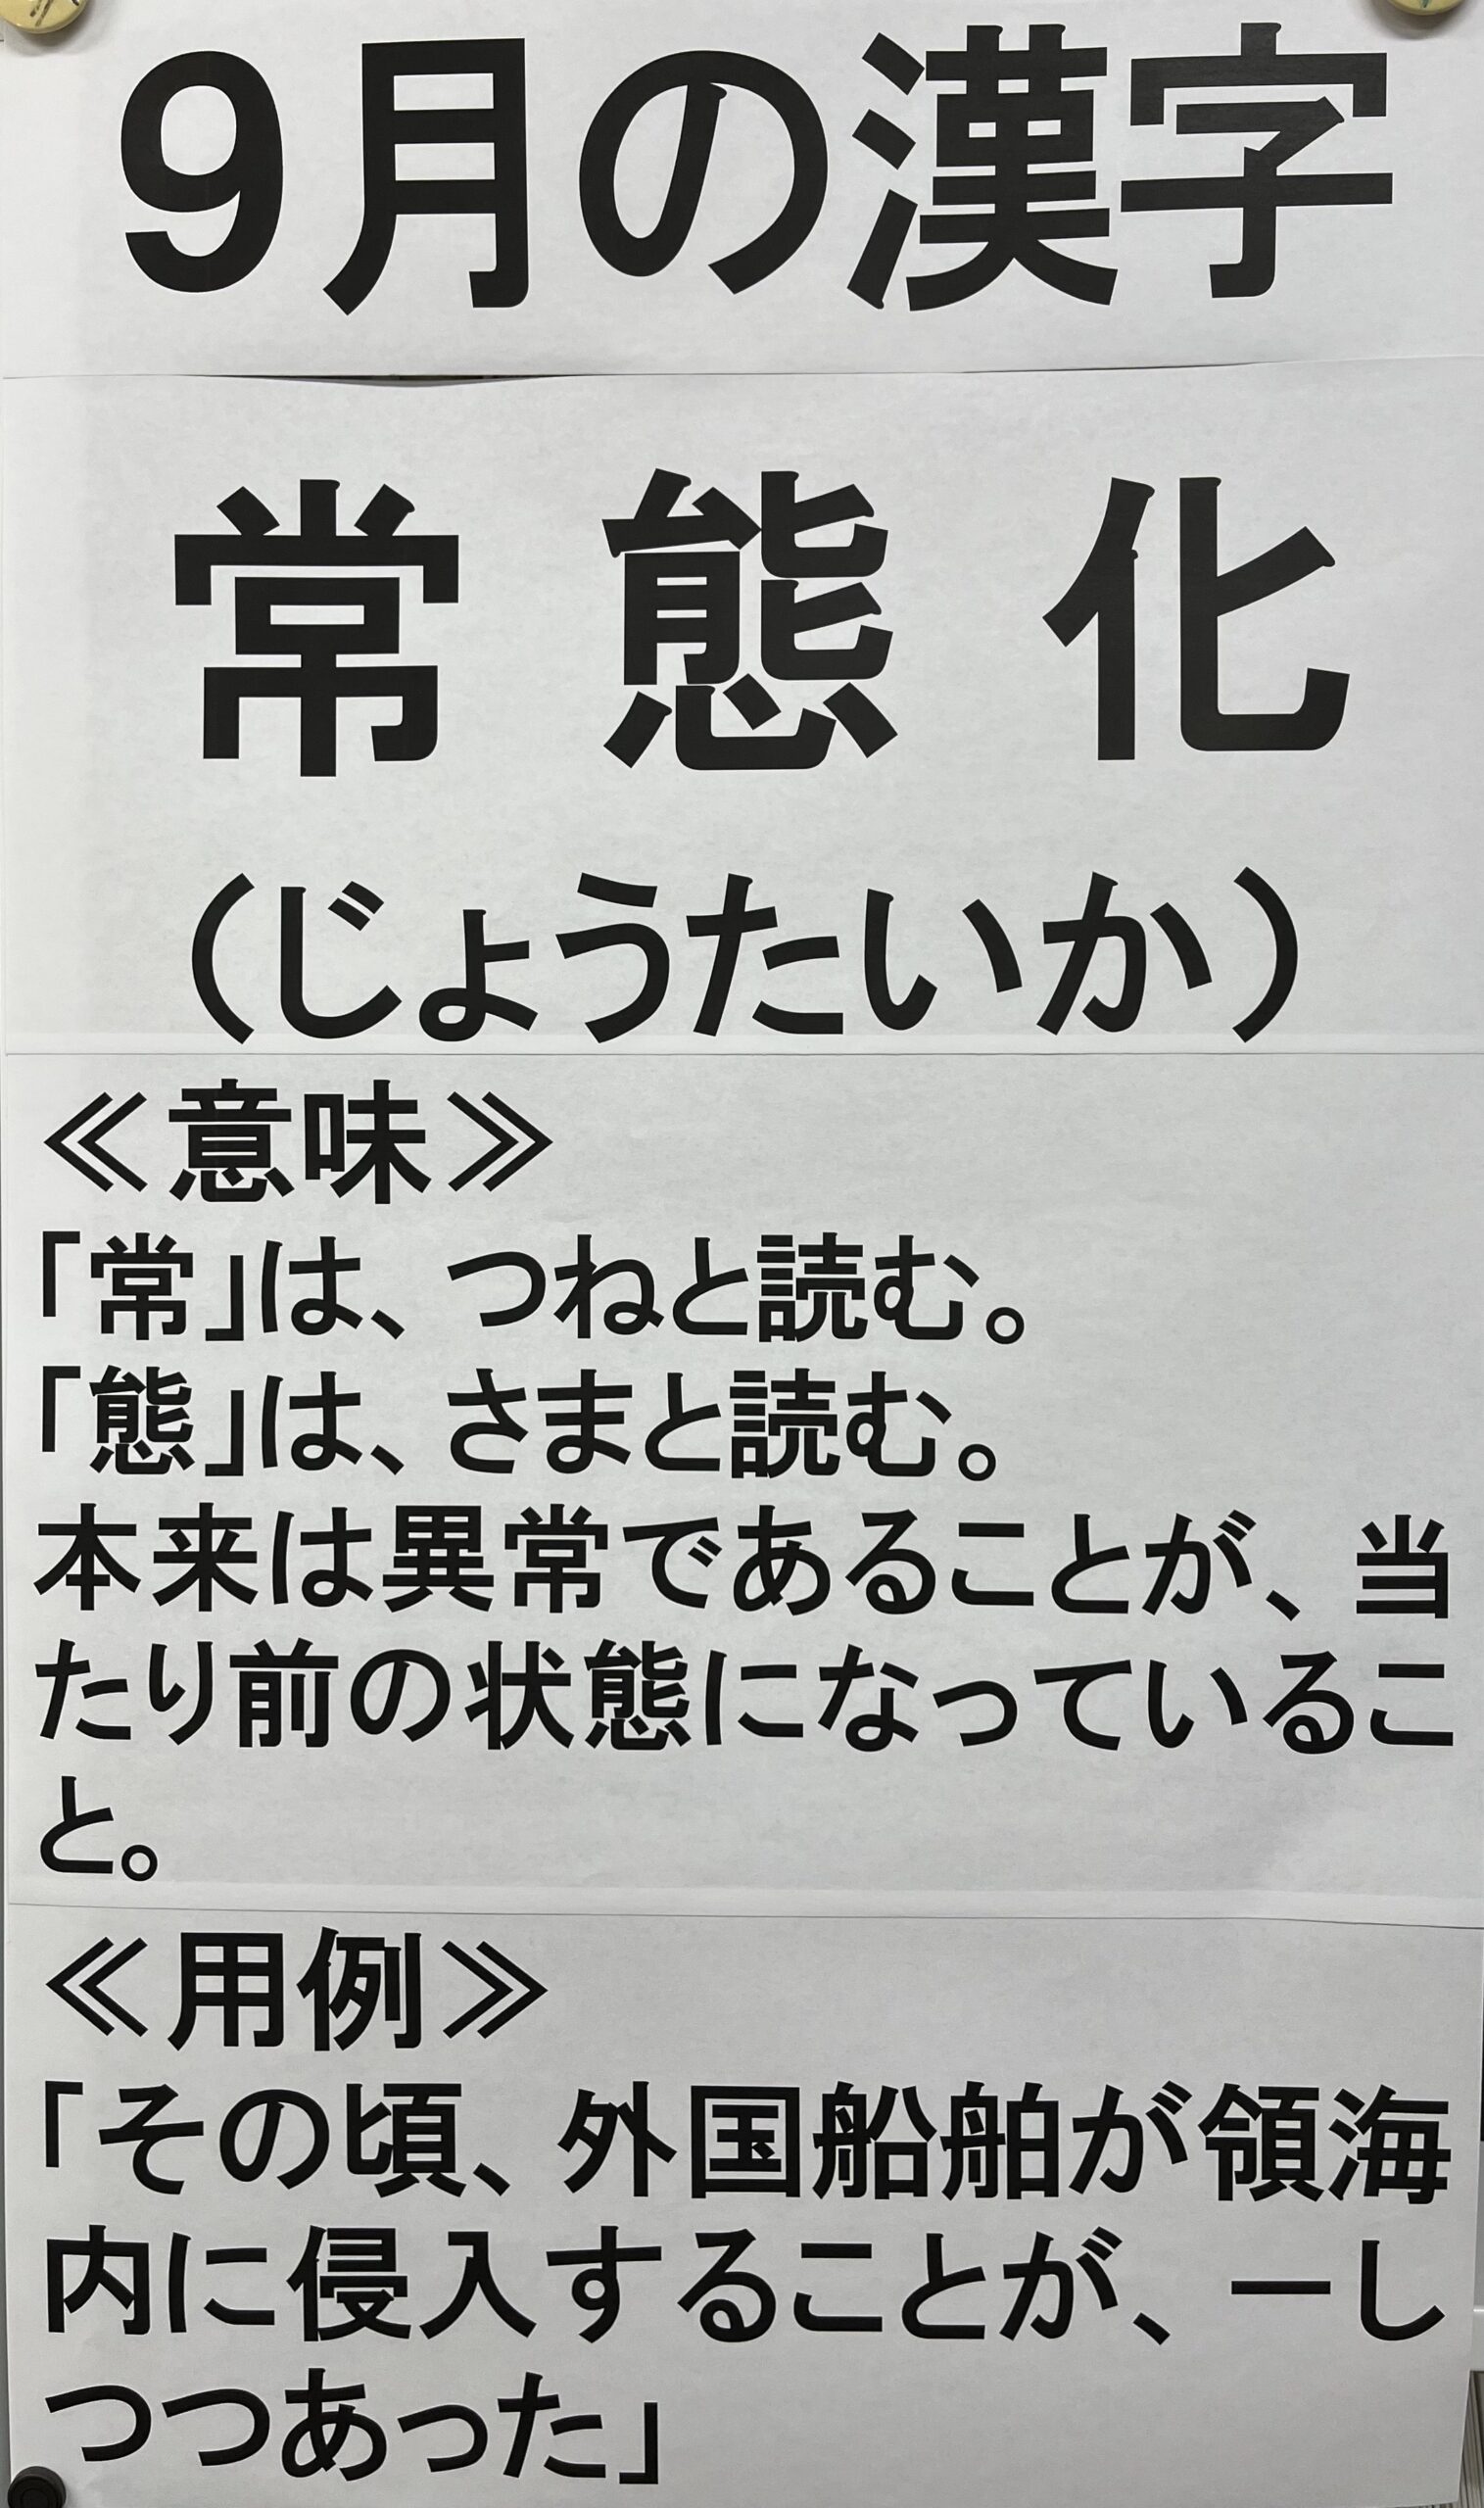 9月の漢字
常態化
（じょうたいか）
≪意味≫
「常」は、つねと読む。
「態」は、さまと読む。
本来は異常であることが、当
たり前の状態になっているこ
と。
≪用例≫
「その頃、外国船舶が領海
内に侵入することが、―し
つつあった」